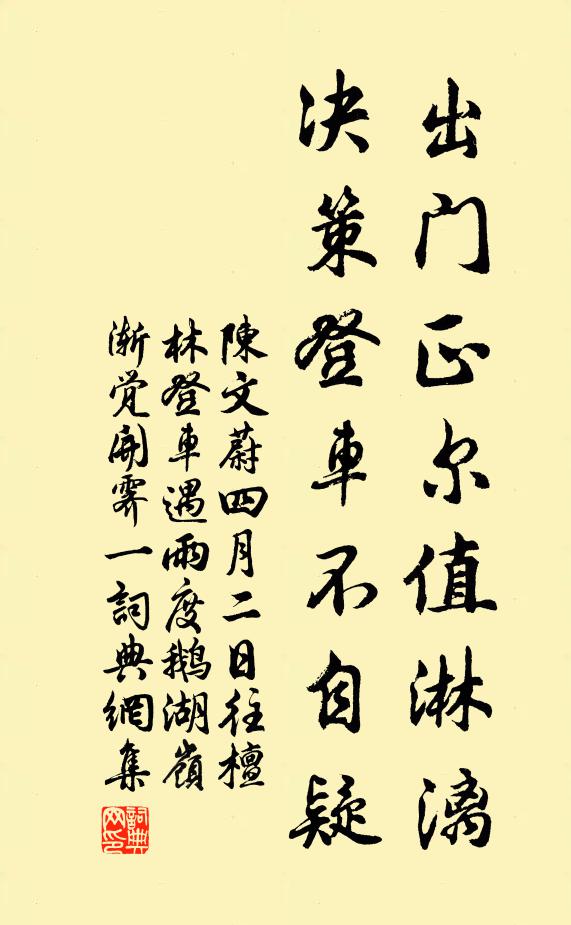 出门正尔值淋漓
决策登車不自疑
陳文蔚四月二日往檀
林登車遇雨度鵝湖嶺
渐觉開霽一詞典網集
詞典網印